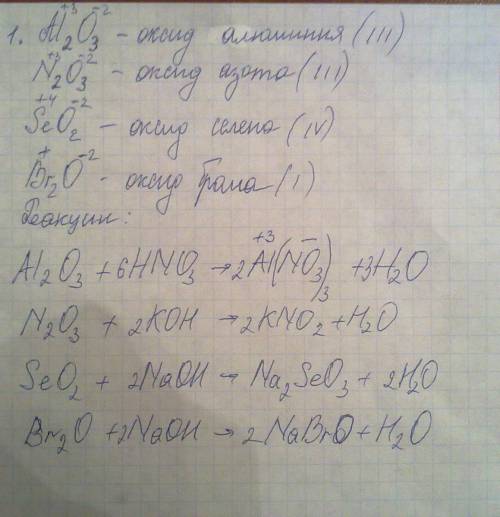 1. Al₂⁺³O₃⁻² - оксид алюминия (III)
N₂⁺³O₃⁻² - оксид азота (III)
Se⁺⁴O₂⁻² - оксид селена (IV)
Br₂⁺O⁻² - оксид брома (I)
Реакции:
Al₂O₃ + 6HNO₃ → 2Al⁺³(NO₃⁻)₃ + 3H₂O
N₂O₃ + 2KOH → 2KNO₂ + H₂O
SeO₂ + 2NaOH → Na₂SeO₃ + 2H₂O
Br₂O + 2NaOH → 2NaBrO + H₂O